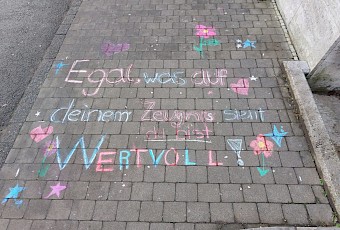 Egal, was auf
deinem Zeugnis steht
du bist
WERTVOLL!